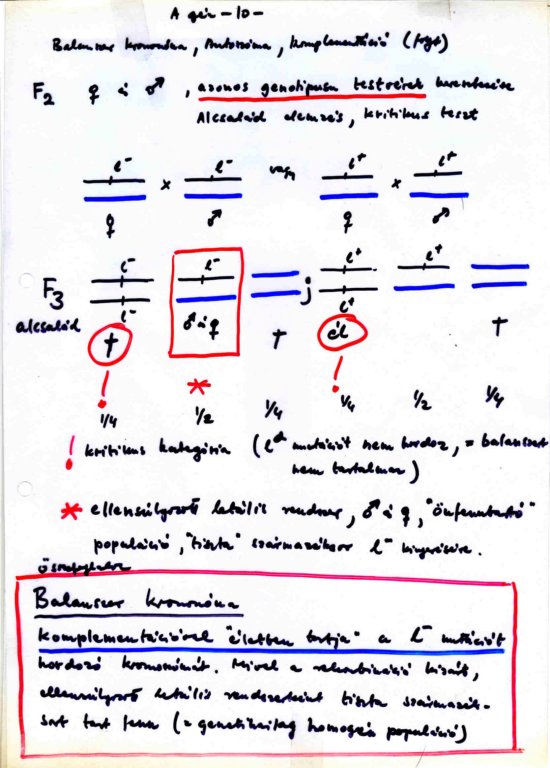 A gén -10-
Balanszer kromoszóma, Autoszóma, komplementáció (folyt)
F₂ ♀ és ♂, azonos genotípusu testvérek keresztezése
Alcsalád elemzés, kritikus teszt
l⁻ l⁻ vagy l⁺ l⁺
× ×
♀ ♂ ♀ ♂
l⁻ l⁻ l⁺ l⁺
F₃ ;
l⁻ l⁺
alcsalád † ♂ és ♀ † él †
! * !
1/4 1/2 1/4 1/4 1/2 1/4
! kritikus kategória ( mutációt nem hordoz, = balanszert
nem tartalmaz)
* ellensúlyozott letális rendszer, ♂ és ♀, "önfenntartó"
populáció, "tiszta" származéksor l⁻
Összefoglalva
Balanszer kromoszóma
komplementációval "életben tartja" a l⁻ mutációt
hordozó kromoszómát. Mivel a rekombináció kizárt,
ellensúlyozott letális rendszerként tiszta származék-
sort tart fenn (= genetikailag homogén populáció)